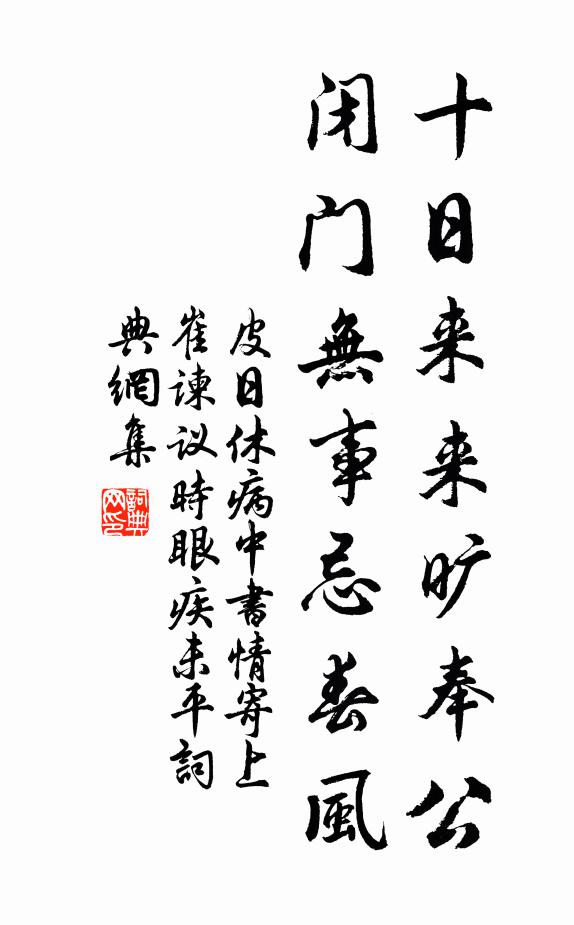 十日来来旷奉公
闭门無事忌春風
皮日休病中書情寄上
崔谏议時眼疾未平詞
典網集
詞典网印